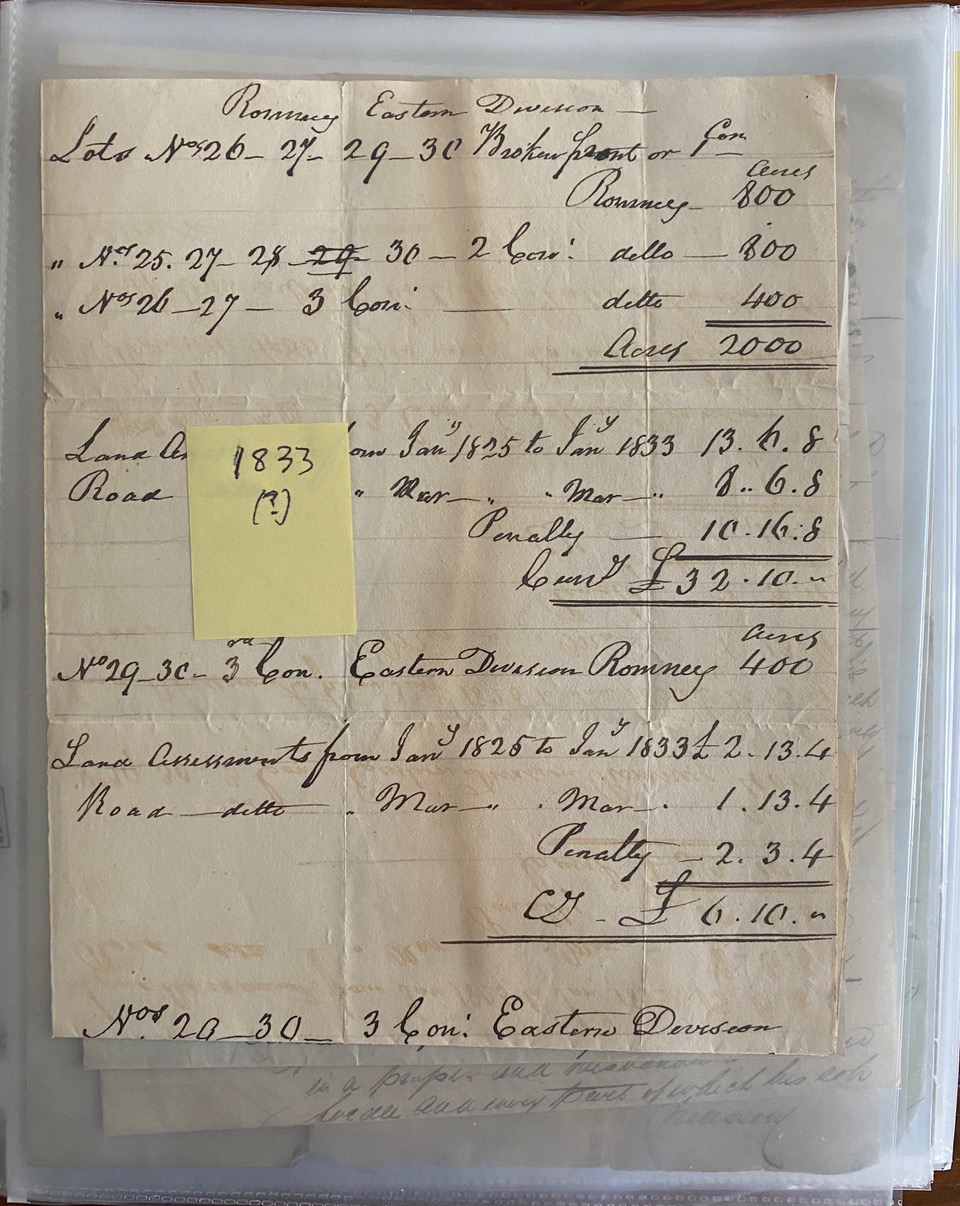 Romney Eastern Division —
Lots Nos 26 – 27 – 29 – 30 Broken front or
Acres
Romney – 800
" Nos 25. 27 – 28 – 29 – 30 – 2 Con: ditto — 800
" Nos 26 – 27 – 3 Con: — ditto 400
Acres 2000
Land As om Jany 1825 to Jany 1833 13. 6. 8
Road " Mar – " " Mar – " 8 .. 6. 8
Penalty — 10. 16. 8
Curry £32. 10. "
1833
(?)
Acres
No 29 – 30 – 3rd Con. Eastern Division Romney 400
Land Assessments from Jany 1825 to Jany 1833 £2. 13. 4
Road – ditto – " Mar – " . Mar – . 1. 13. 4
Penalty – 2. 3. 4
Cy – £ 6. 10. "
Nos. 29 – 30 – 3 Con: Eastern Division
in a proper and
for all and every part of which his